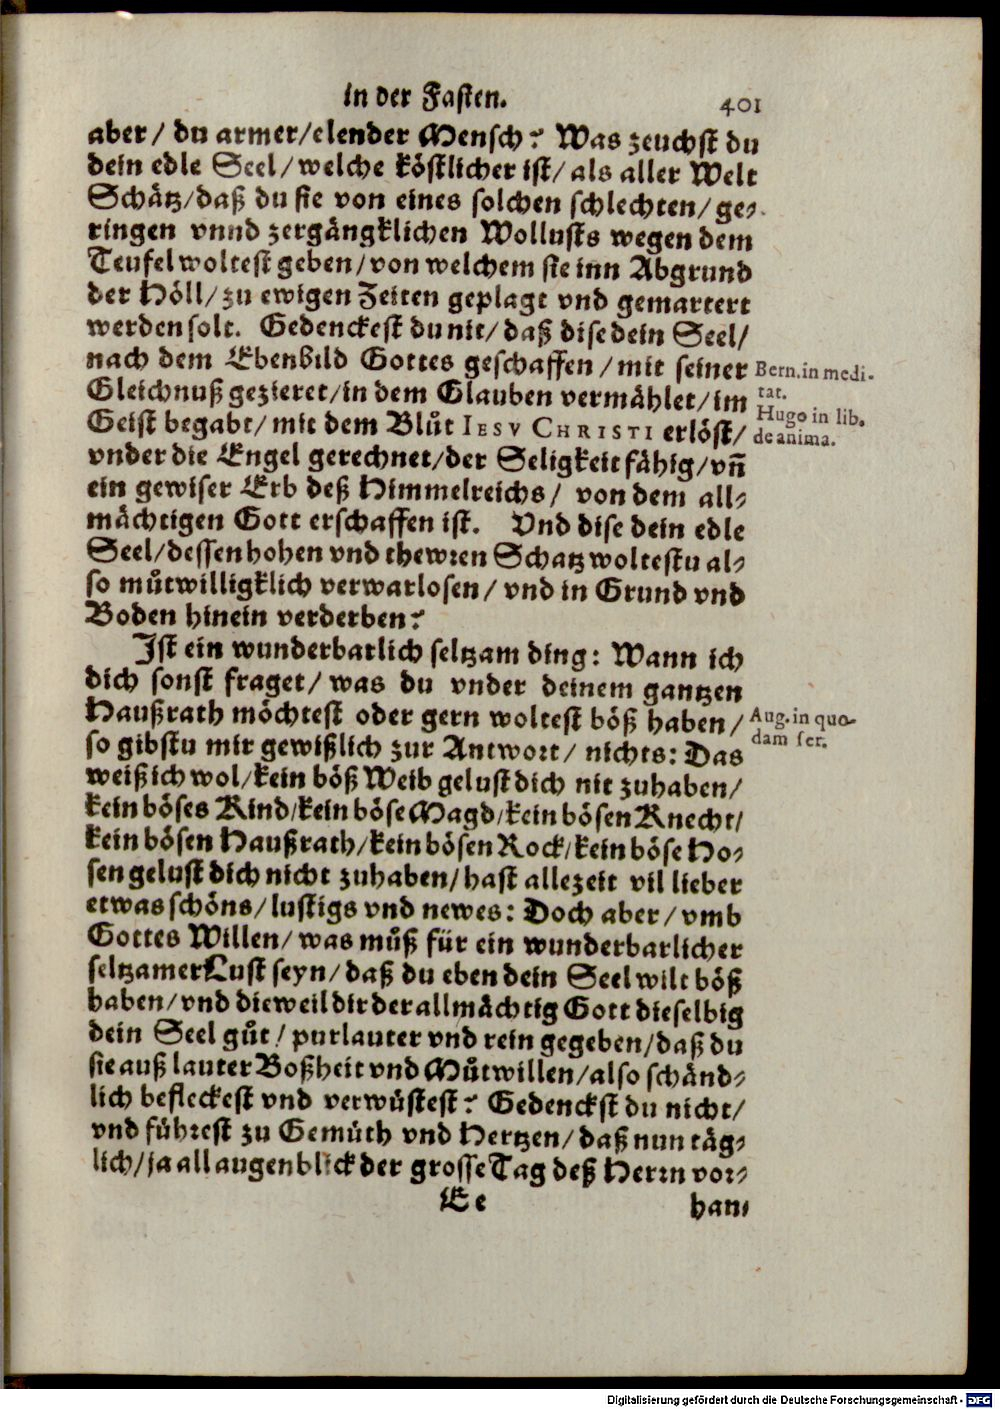 in der Fasten.
401
aber/ du armer/elender Mensch? Was zeuchst du
dein edle Seel/welche köstlicher ist/ als aller Welt
Schätz/daß du sie von eines solchen schlechten/ ge-
ringen vnnd zergängklichen Wollusts wegen dem
Teufel woltest geben/von welchem sie inn Abgrund
der Höll/zu ewigen Zeiten geplagt vnd gemartert
werden solt. Gedenckest du nit/ daß dise dein Seel/
nach dem Ebenbild Gottes geschaffen/mit seiner
Bern. in medi-
tat.
Gleichnuß gezieret/in dem Glauben vermählet/im
Hugo in lib.
de anima.
Geist begabt/ mit dem Blůt IESV CHRISTI erlöst/
vnder die Engel gerechnet/der Seligkeit fähig/vñ
ein gewiser Erb deß Himmelreichs/ von dem all-
mächtigen Gott erschaffen ist. Vnd dise dein edle
Seel/dessen hohen vnd thewren Schatz woltestu al-
so můtwilligklich verwarlosen/ vnd in Grund vnd
Boden hinein verderben?
Ist ein wunderbarlich seltzam ding: Wann ich
dich sonst fraget/ was du vnder deinem gantzen
Haußrath möchtest oder gern woltest böß haben/
Aug. in quo-
dam ser.
so gibstu mir gewißlich zur Antwort/ nichts: Das
weiß ich wol/kein böß Weib gelust dich nit zuhaben/
kein böses Kind/kein böse Magd/kein bösen Knecht/
kein bösen Haußrath/kein bösen Rock/kein böse Ho-
sen gelust dich nicht zuhaben/hast allezeit vil lieber
etwas schöns/lustigs vnd newes: Doch aber/ vmb
Gottes Willen/ was můß für ein wunderbarlicher
seltzamer Lust seyn/daß du eben dein Seel wilt böß
haben/vnd dieweil dir der allmächtig Gott dieselbig
dein Seel gůt/ purlauter vnd rein gegeben/daß du
sie auß lauter Boßheit vnd Můtwillen/also schänd-
lich befleckest vnd verwüstest? Gedenckst du nicht/
vnd führest zu Gemüth vnd Hertzen/daß nun täg-
lich/ja all augenblick der grosse Tag deß Herrn vor-
Ee
han-
Digitalisierung gefördert durch die Deutsche Forschungsgemeinschaft - DFG